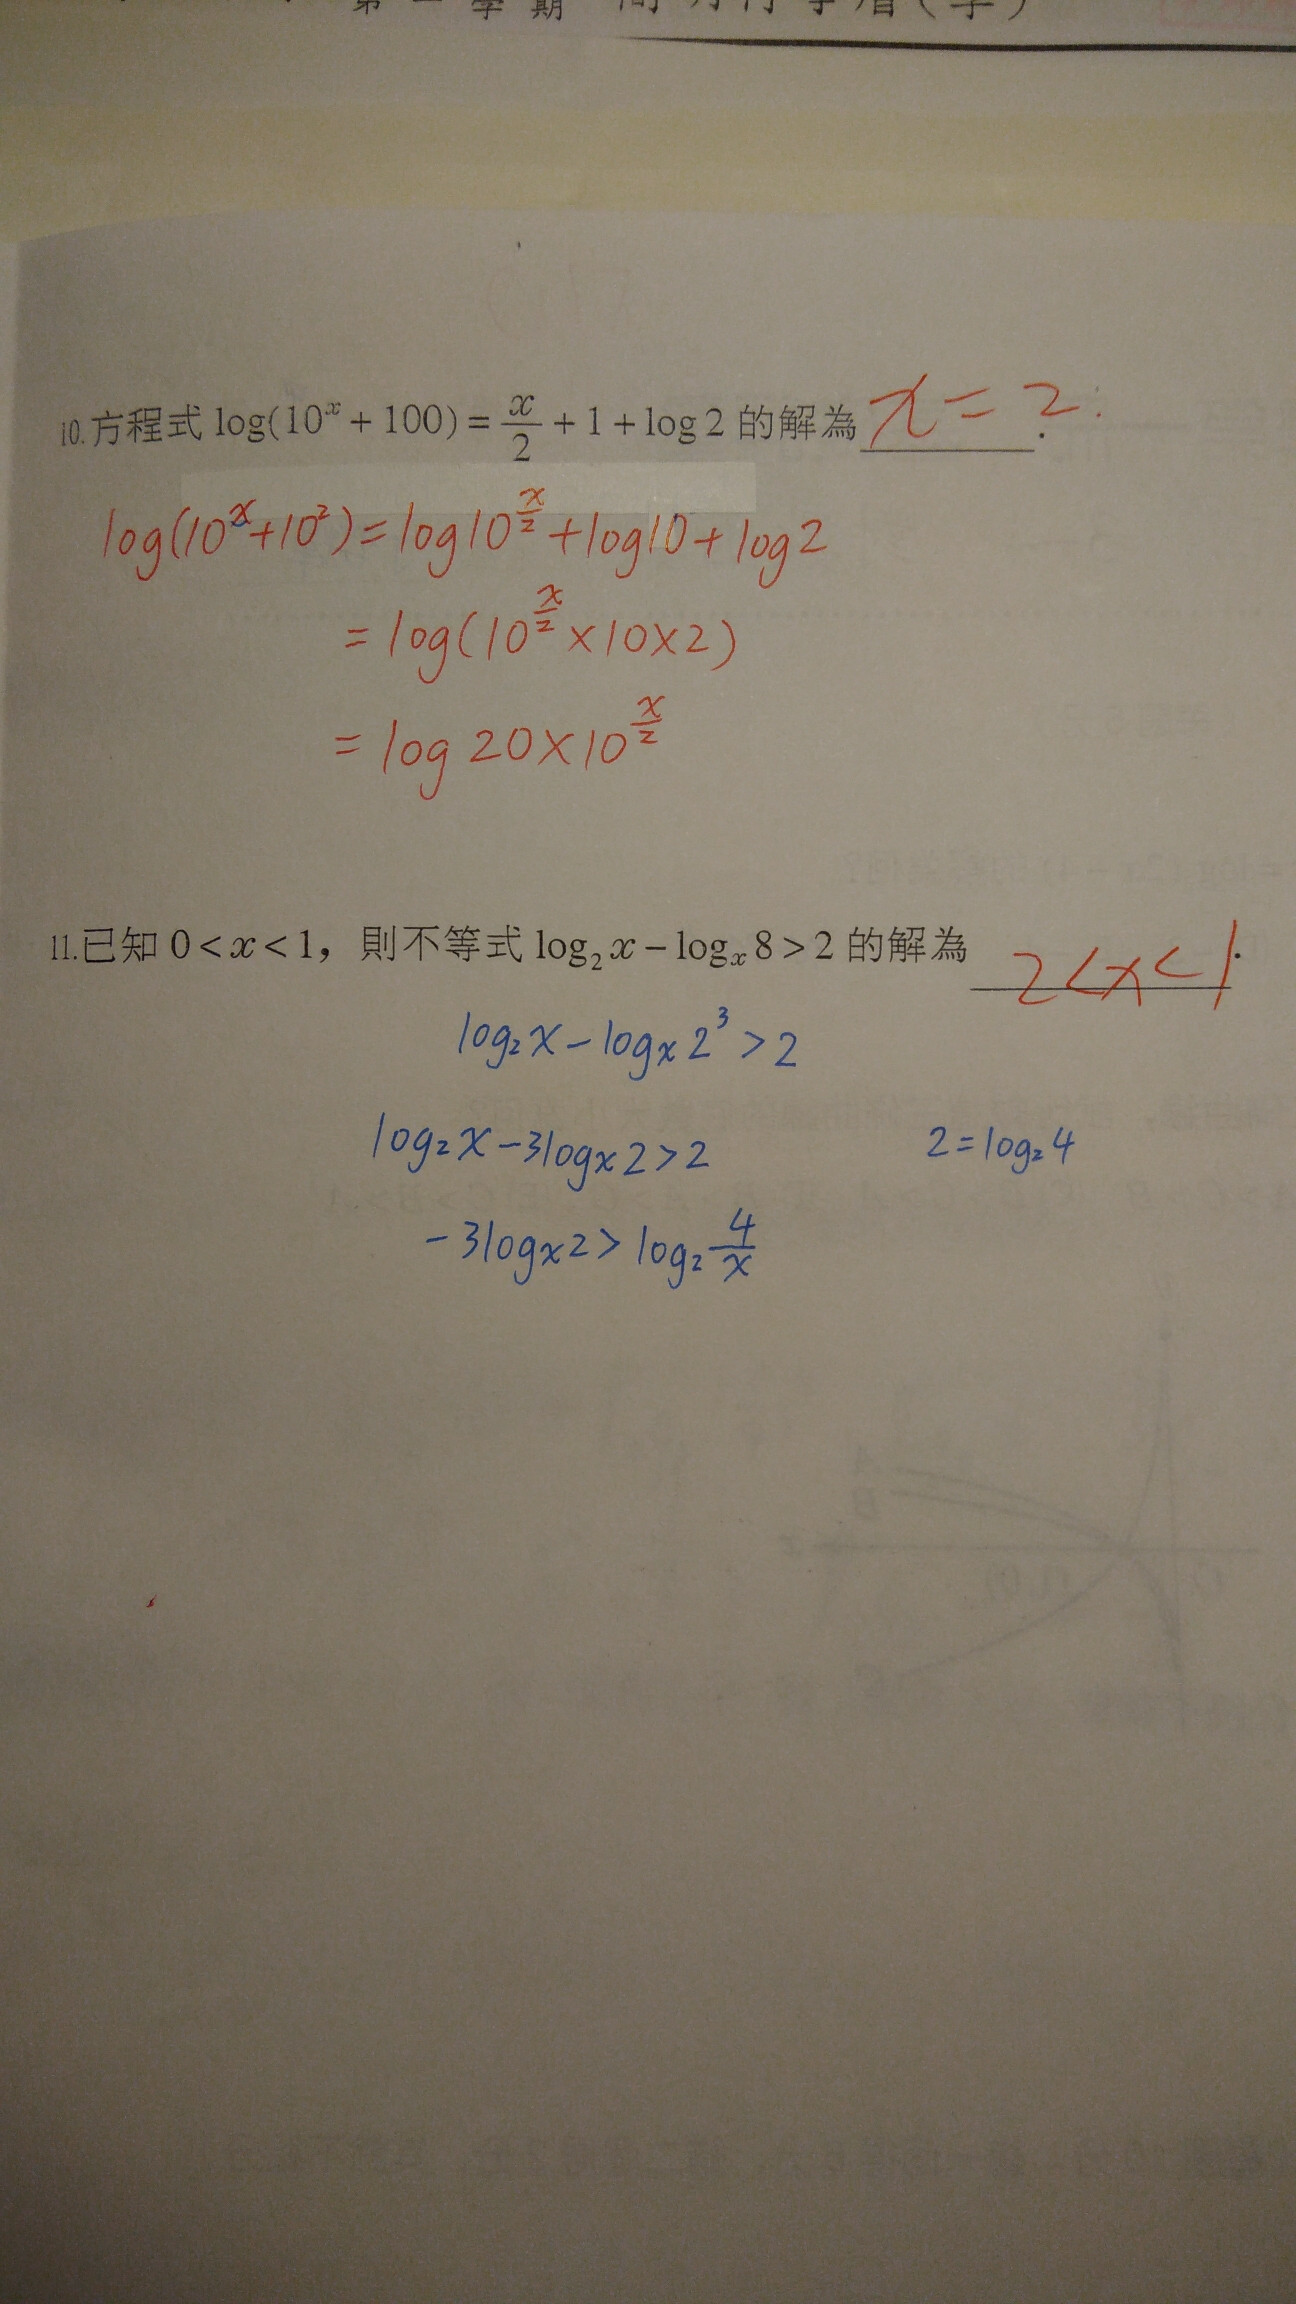 10.方程式 log(10^x + 100) = x/2 + 1 + log 2 的解為 x = 2.
log(10^x + 10^2) = log10^(x/2) + log10 + log2
= log(10^(x/2) × 10 × 2)
= log 20 × 10^(x/2)
11.已知 0 < x < 1，則不等式 log₂ x − logₓ 8 > 2 的解為 2 < x < 1.
log₂x − logₓ2³ > 2
log₂x − 3logₓ2 > 2 2 = log₂4
−3logₓ2 > log₂ 4/x